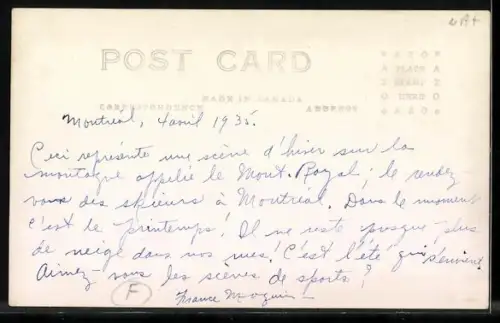 POST CARD
MADE IN CANADA
CORRESPONDENCE ADDRESS
AZO
PLACE
HERE
Montréal, 4 avril 1935.
Ceci représente une scène d'hiver sur la
montagne appelée le Mont-Royal; le rendez-
vous des skieurs à Montréal. Dans le moment
c'est le printemps! Il ne reste presque plus
de neige dans nos rues! C'est l'été qui s'envient.
Aimez-vous les scènes de sports?
F